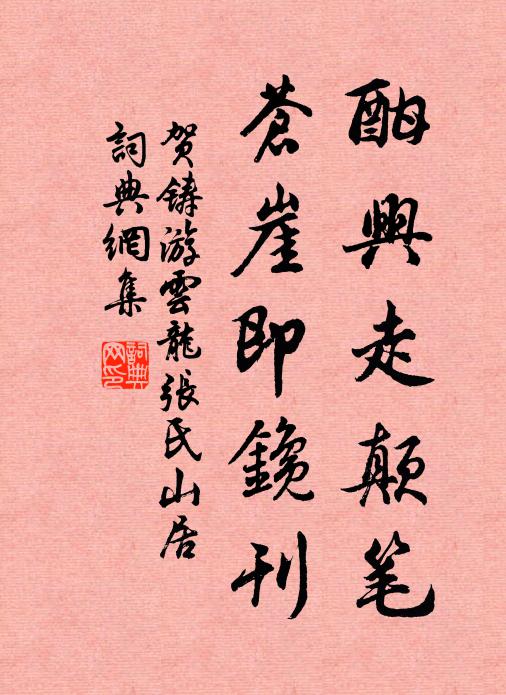 酣興走顛笔
蒼崖即鑱刊
贺鑄游雲龍張氏山居
詞典網集
詞典网印